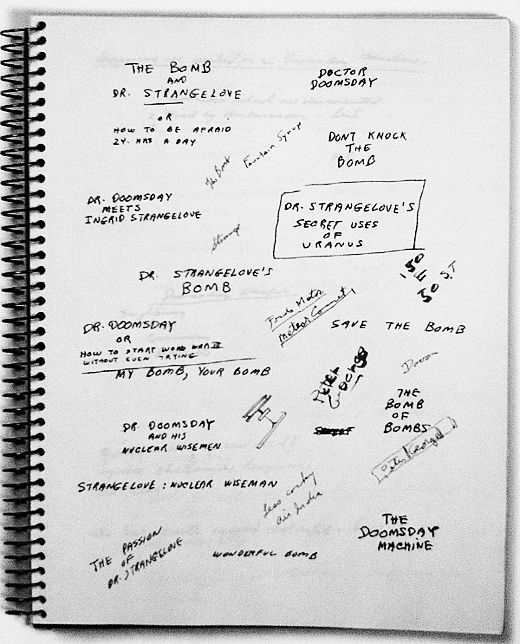 THE BOMB
AND
DR. STRANGELOVE
OR
HOW TO BE AFRAID
24 HRS A DAY
DOCTOR
DOOMSDAY
DONT KNOCK
THE
BOMB
Fountain Syrup
DR. DOOMSDAY
MEETS
INGRID STRANGELOVE
DR. STRANGELOVE'S
SECRET USES
OF
URANUS
DR. STRANGELOVE'S
BOMB
150
E
50
S.T
Meteor Comet
SAVE THE BOMB
DR. DOOMSDAY
OR
HOW TO START WORLD WAR III
WITHOUT EVEN TRYING
MY BOMB, YOUR BOMB
PETER
GEORGE
THE
BOMB
OF
BOMBS
DR. DOOMSDAY
AND HIS
NUCLEAR WISEMEN
Peter George
STRANGELOVE : NUCLEAR WISEMAN
air India
THE PASSION
OF
DR. STRANGELOVE
WONDERFUL BOMB
THE
DOOMSDAY
MACHINE